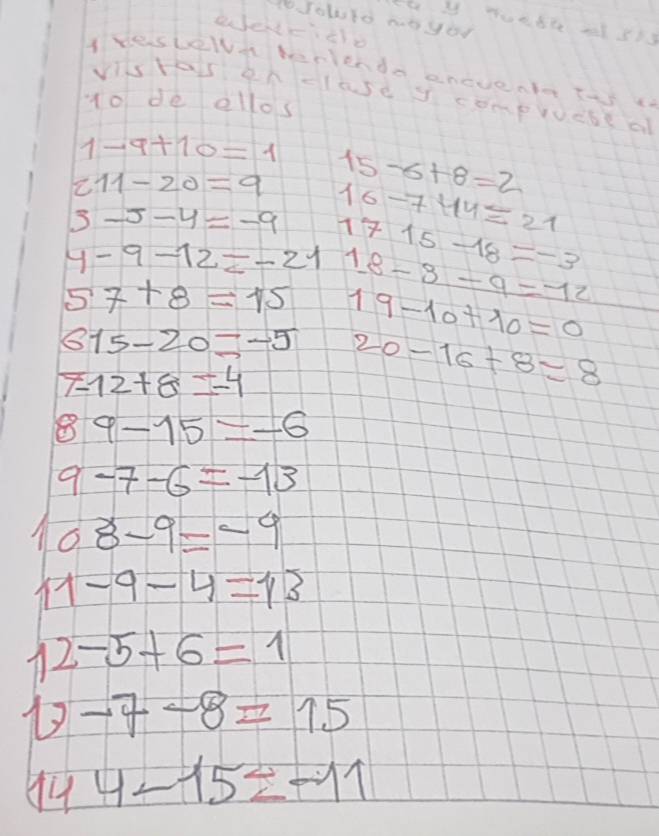 y
mayor
ejercicio
1 resuelva teniendo encuenta las
vistas en clase y compruebe al
10 de ellos
1 -9+10=1
2 11-20=9
3 -5-4=-9
4 -9-12=-21
5 7+8=15
6 15-20=-5
7 -12+8=-4
8 9-15=-6
9 -7-6=-13
10 8-9=-9
11 -9-4=13
12 -5+6=1
13 -7-8=15
14 4-15=-11
15 -6+8=2
16 -7+14=21
17 15-18=-3
18 -3-9=-12
19 -10+10=0
20 -16+8=8